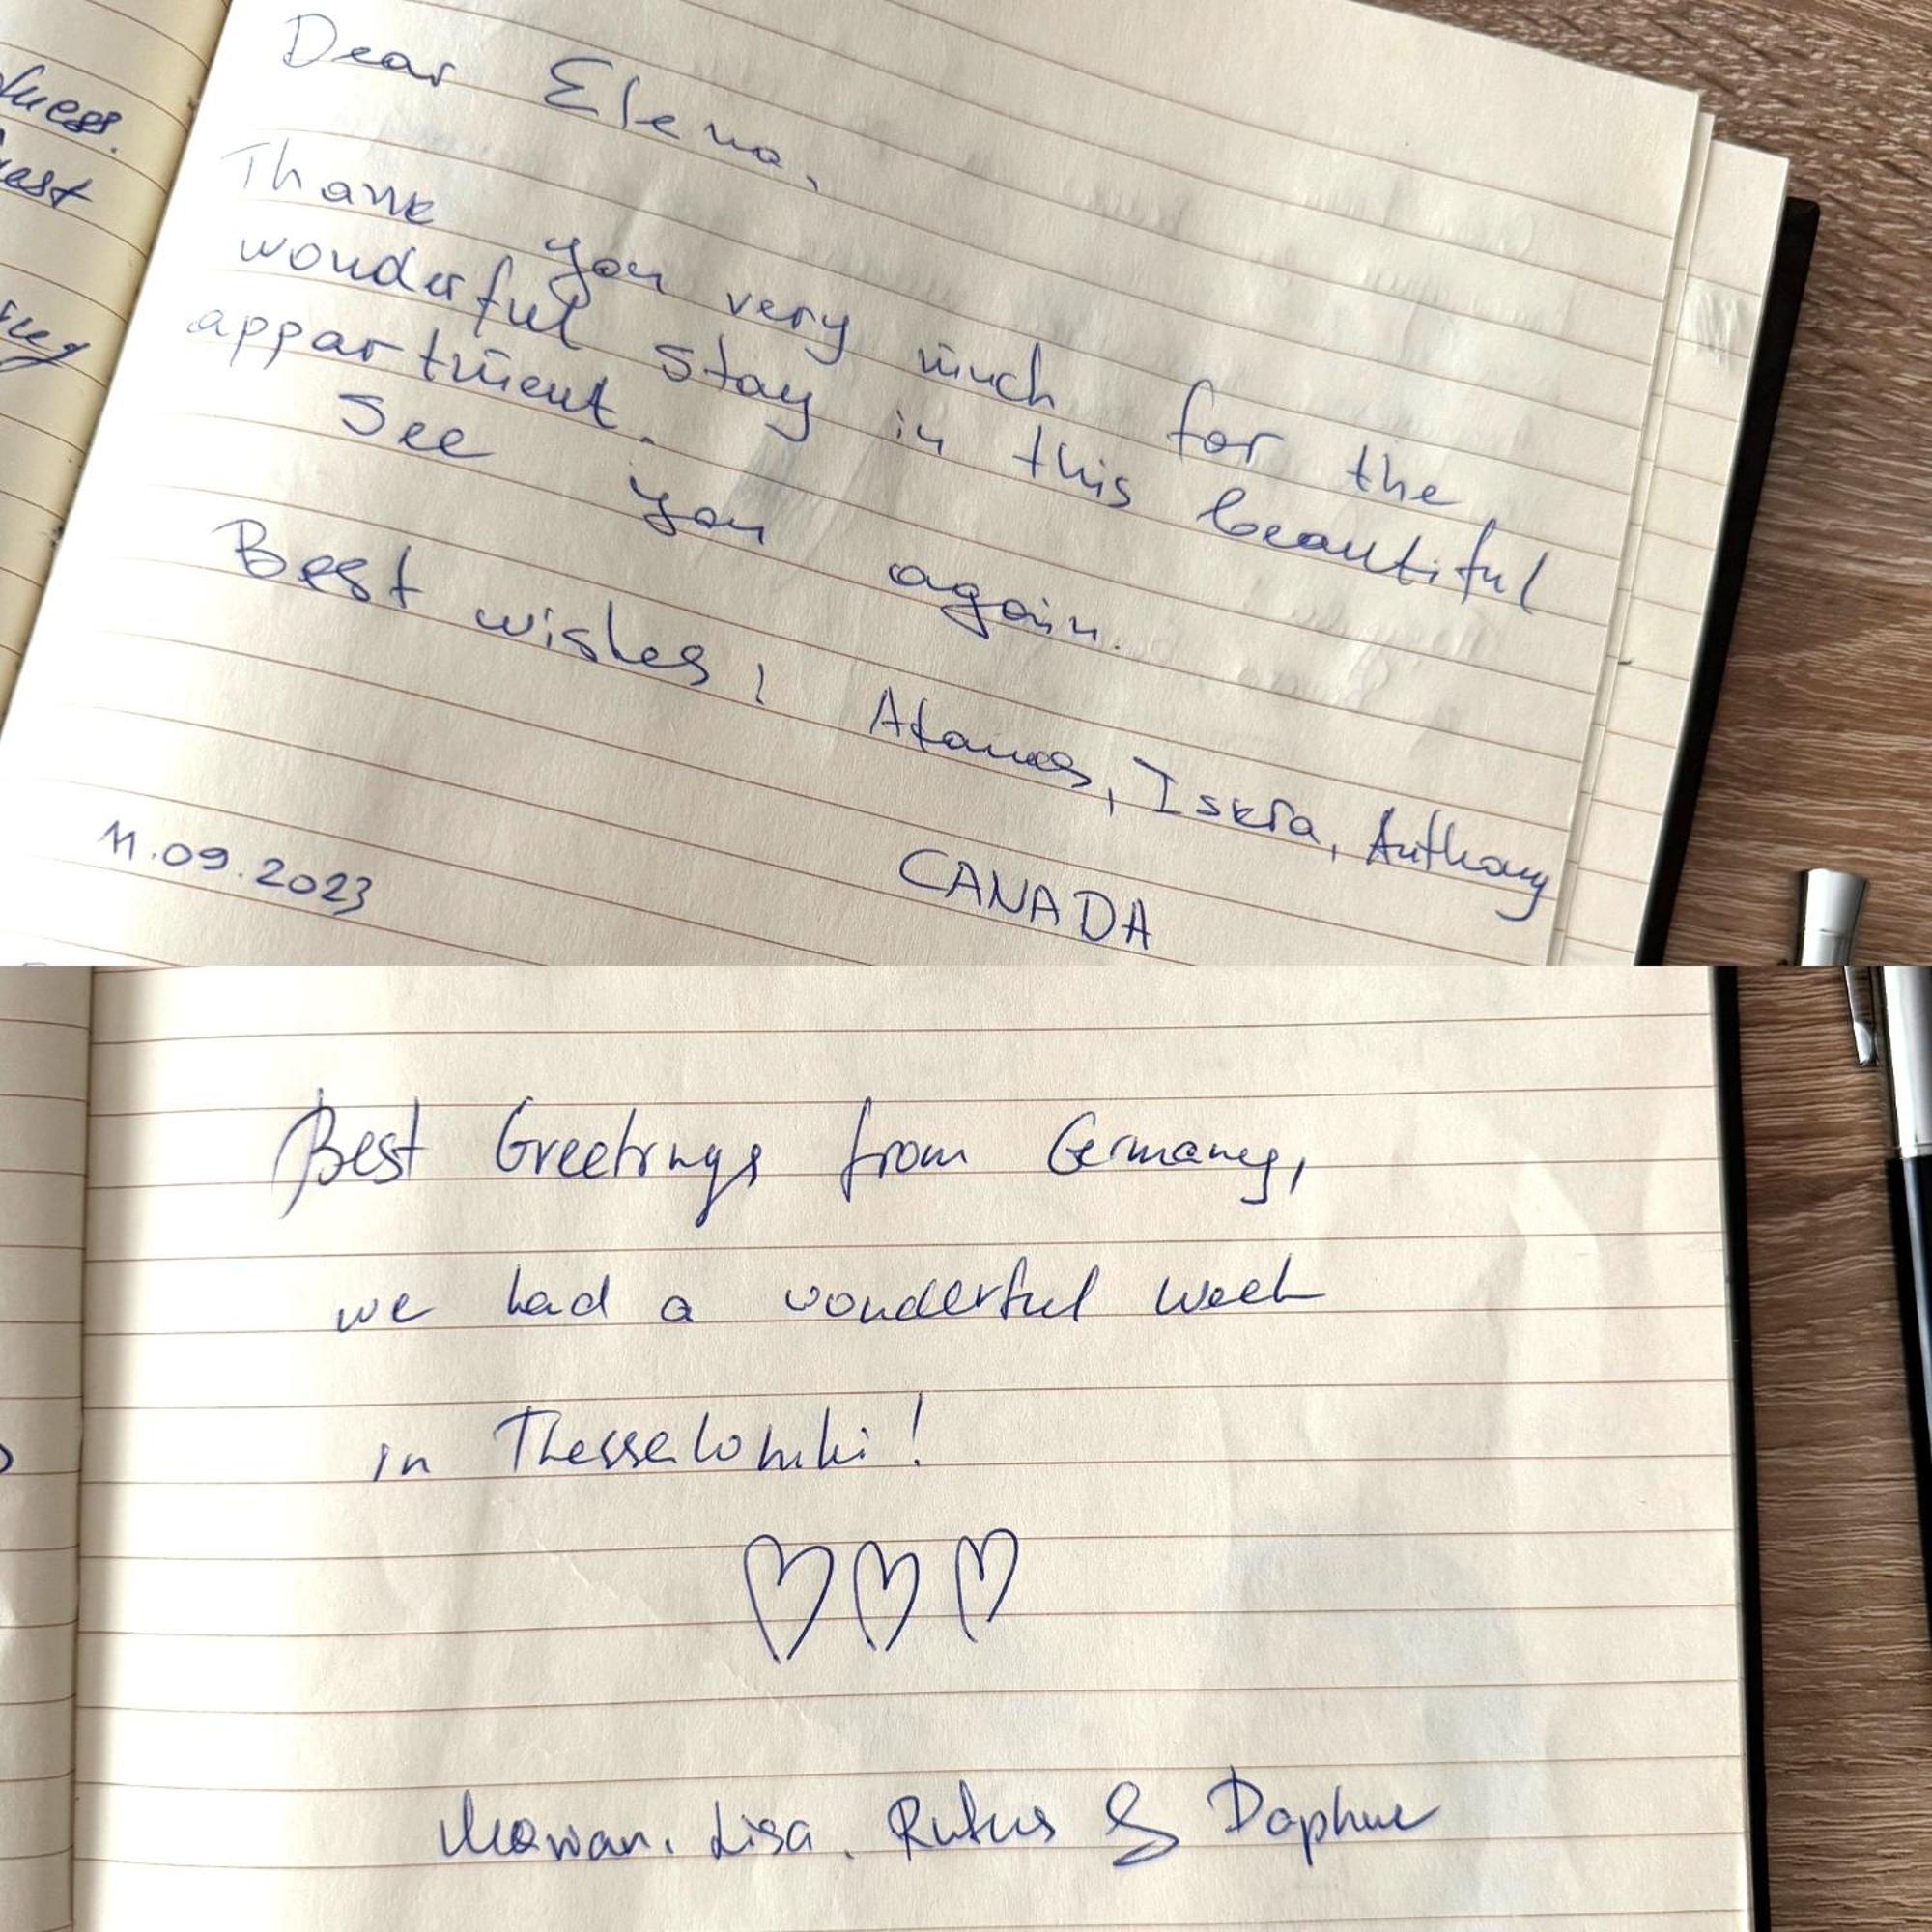 Dear Elena,
Thank you very much for the
wonderful stay in this beautiful
appartment.
See you again.
Best wishes, Atanas, Iskra, Anthony
11.09.2023
CANADA
Best Greetings from Germany,
we had a wonderful week
in Thesselonki!
Lisa, Rufus & Daphne